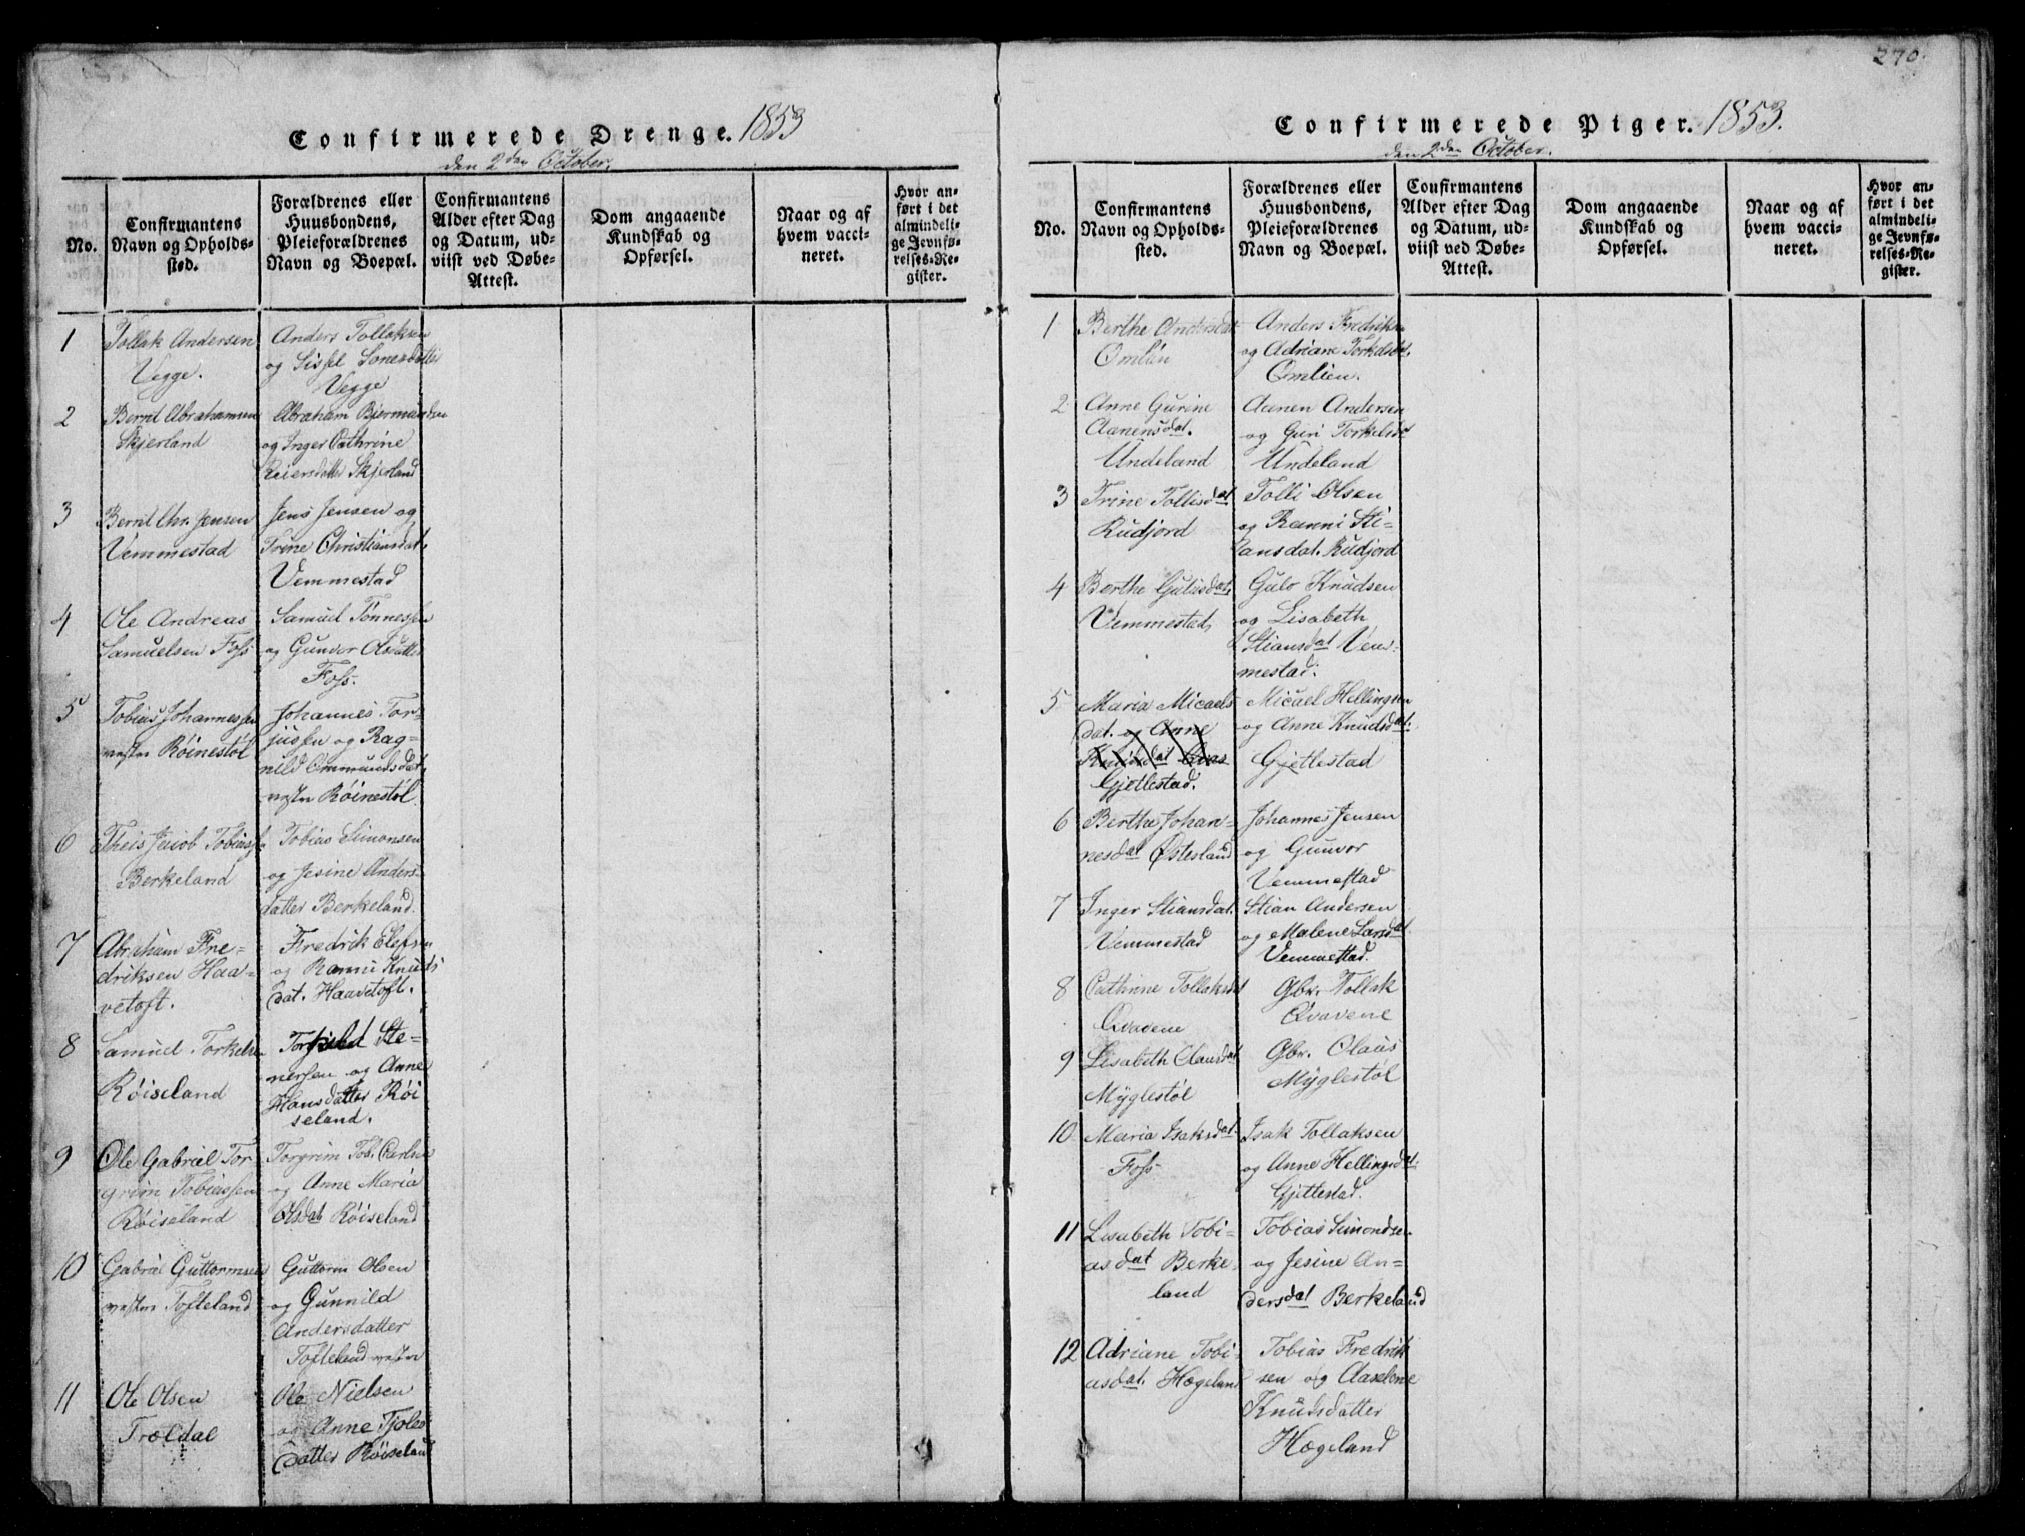 270.
Confirmerede Drenge. 1853
den 2den October.
No.
Confirmantens
Navn og Opholds-
sted.
Forældrenes eller
Huusbondens,
Pleieforældrenes
Navn og Boepæl.
Confirmantens
Alder efter Dag
og Datum, ud-
viist ved Døbe-
Attest.
Dom angaaende
Kundskab og
Opførsel.
Naar og af
hvem vacci-
neret.
Hvor an-
ført i det
almindeli-
ge Jevnfø-
relses-Re-
gister.
1
Tollak Andersen
Vegge.
Anders Tollaksen
og Sissel
Vegge
2
Bernt Abrahamsen
Skjerland
Abraham
og Inger Cathrine
Reiersdatter Skjerland
3
Bernt Chr. Jensen
Vemmestad
Jens Jensen og
Trine Christiansdat.
Vemmestad
4
Ole Andreas
Samuelsen Foss
Samuel Tønnessen
og Gunvor Olsdatter
Foss.
5
Tobias Johannessen
vestre Røinestøl
Johannes Tor-
jussen og Rag-
nild Ommundsdat.
vestre Røinestøl
6
Theis Jacob Tobiass.
Berkeland
Tobias Simonsen
og Jesine Anders-
datter Berkeland.
7
Abraham Fre-
driksen Haa-
vetoft.
Fredrik Elefsen
og Ranni Knuds
dat. Haavetoft.
8
Samuel Torkelsen
Røiseland
Torkild Ste-
nersen og Anne
Hansdatter Røi
seland.
9
Ole Gabriel Tor
grim Tobiassen
Røiseland
Torgrim Tob. Carlsen
og Anne Maria
Olsdat Røiseland
10
Gabriel Guttormsen
vestre Tofteland
Guttorm Olsen
og Gunnild
Andersdatter
Tofteland vestre
11
Ole Olsen
Trældal
Ole Nielsen
og Anne Tjøls
datter Røiseland
Confirmerede Piger. 1853.
den 2den October.
No.
Confirmantens
Navn og Opholds-
sted.
Forældrenes eller
Huusbondens,
Pleieforældrenes
Navn og Boepæl.
Confirmantens
Alder efter Dag
og Datum, ud-
viist ved Døbe-
Attest.
Dom angaaende
Kundskab og
Opførsel.
Naar og af
hvem vacci-
neret.
Hvor an-
ført i det
almindeli-
ge Jevnfø-
relses-Re-
gister.
1
Berthe Andersdat
Omlien
Anders Fredriks.
og Adriane Torkelsdat.
Omlien.
2
Anne Gurine
Aanensdat.
Undeland
Aanen Andersen
og Guri Torkelsdt
Undeland
3
Trine Tollisdat
Rudjord
Tolli Olsen
og Ranni Sti-
ansdat. Rudjord
4
Berthe Gulusdat.
Vemmestad,
Gulo Knudsen
og Lisabeth
Stiansdat Vem-
mestad.
5
Maria Micaels
dat. og Anne
Knudsdat
Gjettestad.
Micael Hellingsen
og Anne Knudsdat.
Gjettestad
6
Berthe Johan-
nesdat Østesland
Johannes Jensen
og Gunvor
Vemmestad
7
Inger Stiansdat.
Vemmestad
Stian Andersen
og Malene Larsdat
Vemmestad.
8
Cathrine Tollaksdat
Qvavene
Gbr. Tollak
Qvavene
9
Lisabeth Olausdat
Myglestøl
Gbr. Olaus
Myglestøl
10
Maria Isaksdat.
Foss
Isak Tollaksen
og Anne Hellingsdat.
Gjettestad.
11
Lisabeth Tobi-
asdat Berke-
land
Tobias Simondsen
og Jesine An-
dersdat Berkeland
12
Adriane Tobi-
asdat. Hægeland
Tobias Fredrik
sen og Aaselene
Knudsdatter
Hægeland